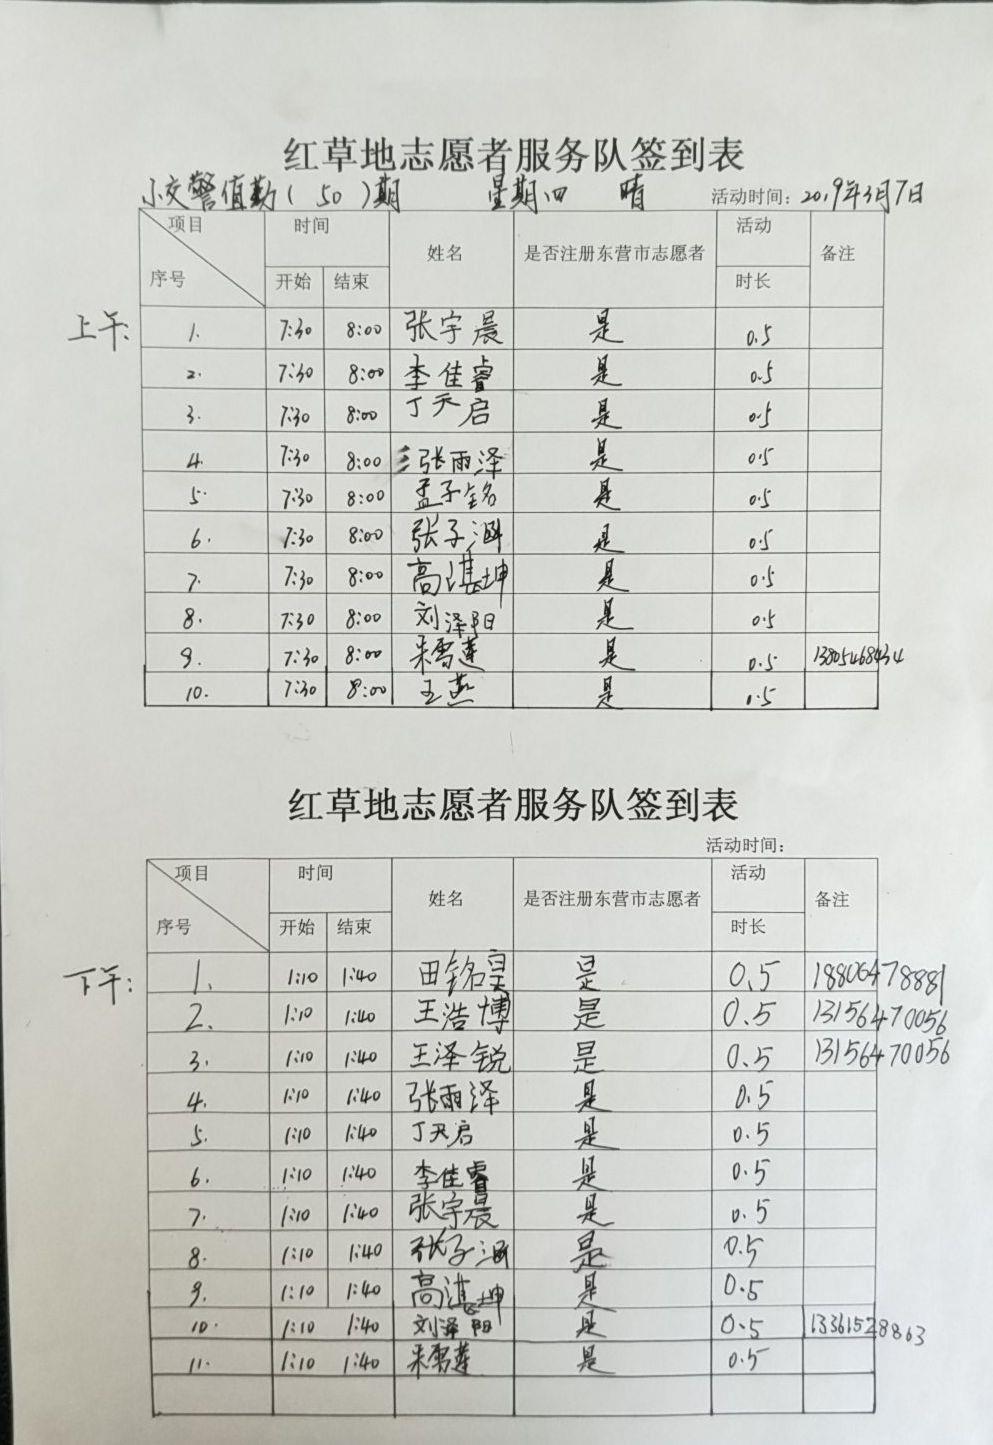 红草地志愿者服务队签到表
小交警值勤（50）期 星期四 晴 活动时间：2019年3月7日
项目 时间 姓名 是否注册东营市志愿者 活动 备注
序号 开始 结束 时长
上午：
1. 7:30 8:00 张宇晨 是 0.5
2. 7:30 8:00 李佳睿 是 0.5
3. 7:30 8:00 丁天启 是 0.5
4. 7:30 8:00 张雨泽 是 0.5
5. 7:30 8:00 孟子铭 是 0.5
6. 7:30 8:00 张子涵 是 0.5
7. 7:30 8:00 高湛坤 是 0.5
8. 7:30 8:00 刘泽阳 是 0.5
9. 7:30 8:00 朱雪莲 是 0.5 13805468434
10. 7:30 8:00 王燕 是 0.5
红草地志愿者服务队签到表
活动时间：
项目 时间 姓名 是否注册东营市志愿者 活动 备注
序号 开始 结束 时长
下午：
1. 1:10 1:40 田铭昊 是 0.5 18806478881
2. 1:10 1:40 王浩博 是 0.5 13156470056
3. 1:10 1:40 王泽锐 是 0.5 13156470056
4. 1:10 1:40 张雨泽 是 0.5
5. 1:10 1:40 丁天启 是 0.5
6. 1:10 1:40 李佳睿 是 0.5
7. 1:10 1:40 张宇晨 是 0.5
8. 1:10 1:40 张子涵 是 0.5
9. 1:10 1:40 高湛坤 是 0.5
10. 1:10 1:40 刘泽阳 是 0.5 13361528863
11. 1:10 1:40 朱雪莲 是 0.5